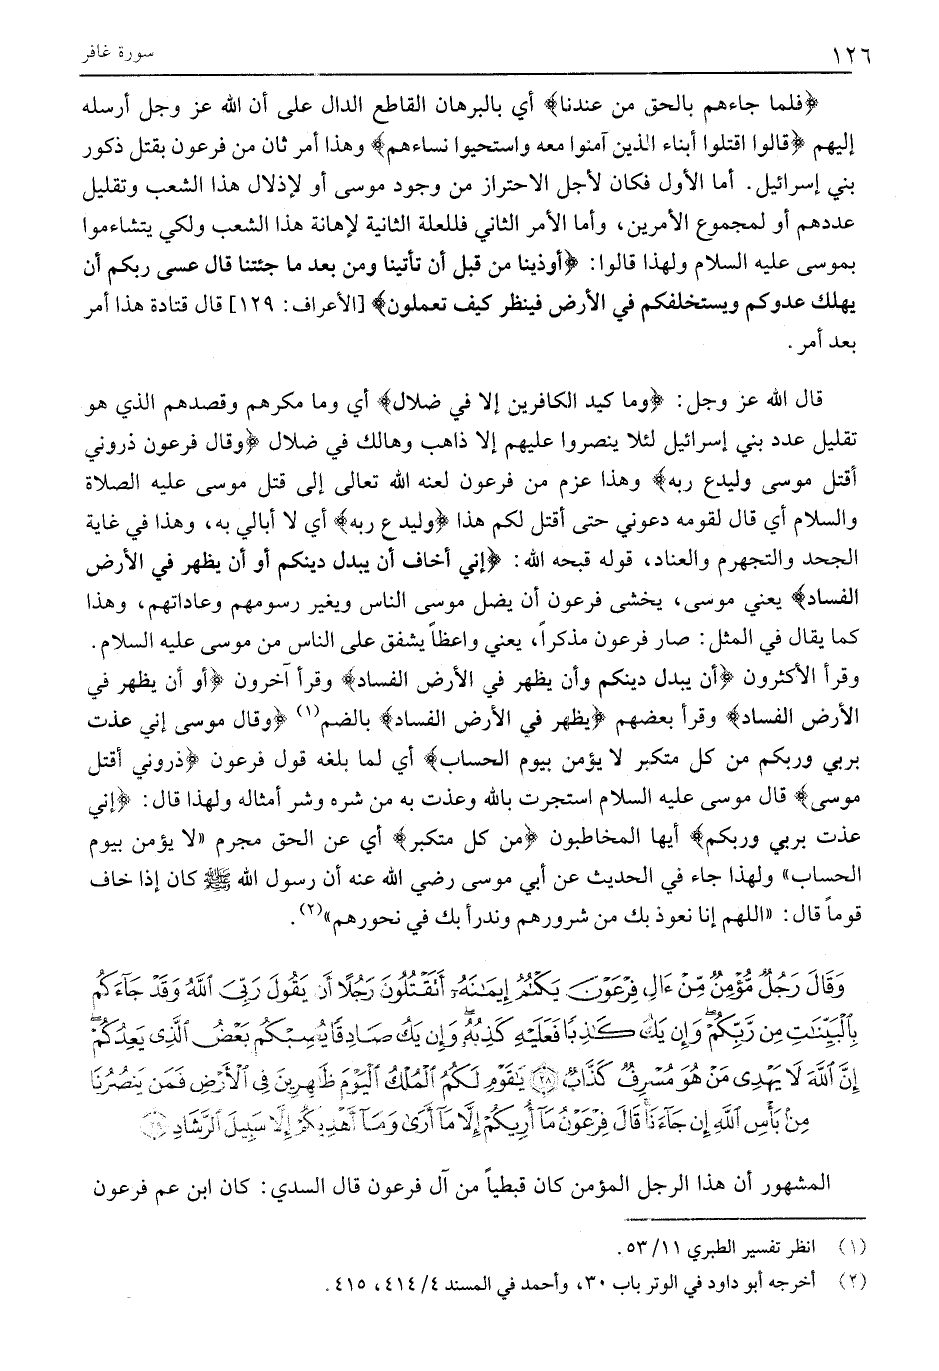 ١٢٦
سورة غافر
﴿فلما جاءهم بالحق من عندنا﴾ أي بالبرهان القاطع الدال على أن الله عز وجل أرسله
إليهم ﴿قالوا اقتلوا أبناء الذين آمنوا معه واستحيوا نساءهم﴾ وهذا أمر ثان من فرعون بقتل ذكور
بني إسرائيل. أما الأول فكان لأجل الاحتراز من وجود موسى أو لإذلال هذا الشعب وتقليل
عددهم أو لمجموع الأمرين، وأما الأمر الثاني فللعلة الثانية لإهانة هذا الشعب ولكي يتشاءموا
بموسى عليه السلام ولهذا قالوا: ﴿أوذينا من قبل أن تأتينا ومن بعد ما جئتنا قال عسى ربكم أن
يهلك عدوكم ويستخلفكم في الأرض فينظر كيف تعملون﴾ [الأعراف: ١٢٩] قال قتادة هذا أمر
بعد أمر.
قال الله عز وجل: ﴿وما كيد الكافرين إلا في ضلال﴾ أي وما مكرهم وقصدهم الذي هو
تقليل عدد بني إسرائيل لئلا ينصروا عليهم إلا ذاهب وهالك في ضلال ﴿وقال فرعون ذروني
أقتل موسى وليدع ربه﴾ وهذا عزم من فرعون لعنه الله تعالى إلى قتل موسى عليه الصلاة
والسلام أي قال لقومه دعوني حتى أقتل لكم هذا ﴿وليدع ربه﴾ أي لا أبالي به، وهذا في غاية
الجحد والتجهرم والعناد، قوله قبحه الله: ﴿إني أخاف أن يبدل دينكم أو أن يظهر في الأرض
الفساد﴾ يعني موسى، يخشى فرعون أن يضل موسى الناس ويغير رسومهم وعاداتهم، وهذا
كما يقال في المثل: صار فرعون مذكراً، يعني واعظاً يشفق على الناس من موسى عليه السلام.
وقرأ الأكثرون ﴿أن يبدل دينكم وأن يظهر في الأرض الفساد﴾ وقرأ آخرون ﴿أو أن يظهر في
الأرض الفساد﴾ وقرأ بعضهم ﴿يظهر في الأرض الفساد﴾ بالضم(١) ﴿وقال موسى إني عذت
بربي وربكم من كل متكبر لا يؤمن بيوم الحساب﴾ أي لما بلغه قول فرعون ﴿ذروني أقتل
موسى﴾ قال موسى عليه السلام استجرت بالله وعذت به من شره وشر أمثاله ولهذا قال: ﴿إني
عذت بربي وربكم﴾ أيها المخاطبون ﴿من كل متكبر﴾ أي عن الحق مجرم «لا يؤمن بيوم
الحساب» ولهذا جاء في الحديث عن أبي موسى رضي الله عنه أن رسول الله ﷺ كان إذا خاف
قوماً قال: «اللهم إنا نعوذ بك من شرورهم وندرأ بك في نحورهم»(٢).
وَقَالَ رَجُلٌ مُّؤْمِنٌ مِّنْ ءَالِ فِرْعَوْنَ يَكْتُمُ إِيمَٰنَهُۥٓ أَتَقْتُلُونَ رَجُلًا أَن يَقُولَ رَبِّىَ ٱللَّهُ وَقَدْ جَآءَكُم
بِٱلْبَيِّنَٰتِ مِن رَّبِّكُمْ ۖ وَإِن يَكُ كَٰذِبًا فَعَلَيْهِ كَذِبُهُۥ ۖ وَإِن يَكُ صَادِقًا يُصِبْكُم بَعْضُ ٱلَّذِى يَعِدُكُمْ ۖ
إِنَّ ٱللَّهَ لَا يَهْدِى مَنْ هُوَ مُسْرِفٌ كَذَّابٌ ﴿٢٨﴾ يَٰقَوْمِ لَكُمُ ٱلْمُلْكُ ٱلْيَوْمَ ظَٰهِرِينَ فِى ٱلْأَرْضِ فَمَن يَنصُرُنَا
مِنۢ بَأْسِ ٱللَّهِ إِن جَآءَنَا ۚ قَالَ فِرْعَوْنُ مَآ أُرِيكُمْ إِلَّا مَآ أَرَىٰ وَمَآ أَهْدِيكُمْ إِلَّا سَبِيلَ ٱلرَّشَادِ ﴿٢٩﴾
المشهور أن هذا الرجل المؤمن كان قبطياً من آل فرعون قال السدي: كان ابن عم فرعون
(١) انظر تفسير الطبري ١١/ ٥٣.
(٢) أخرجه أبو داود في الوتر باب ٣٠، وأحمد في المسند ٤/ ٤١٤، ٤١٥.